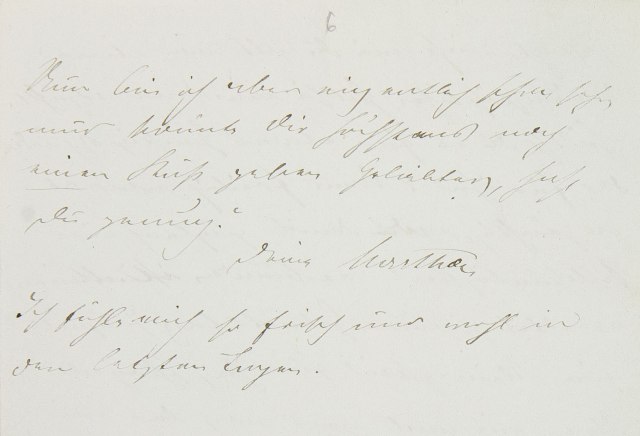 6
Nun bin ich aber eigentlich schon sehr
müd könnte Dir höchstens noch
einen Kuß geben Geliebter, hast
Du genug?
Deine Marthas
Ich fühle mich so frisch und wohl in
den letzten Tagen.